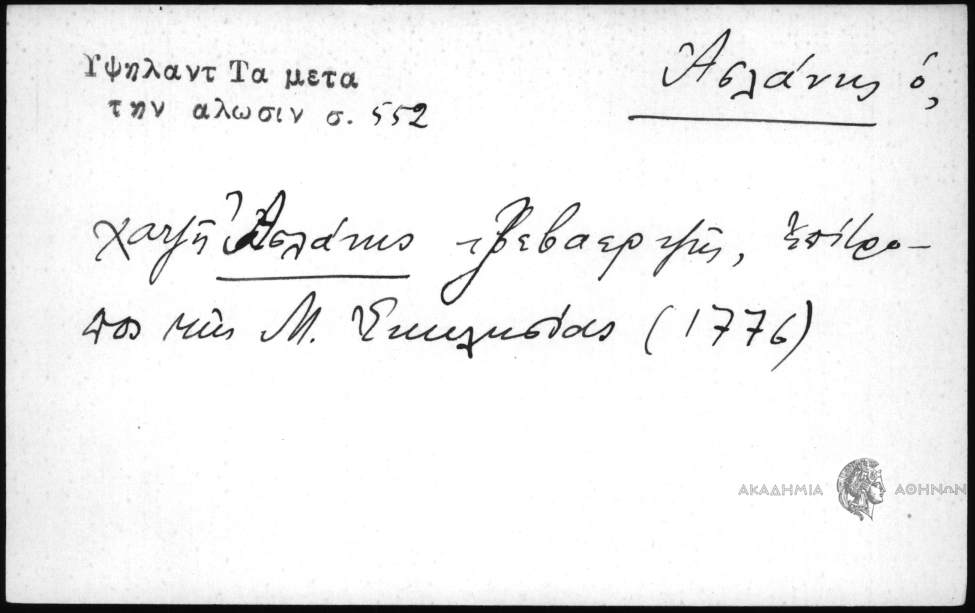 Υψηλαντ Τα μετα
την αλωσιν σ. 552
Ἀσλάνης ὁ,
χατζῆ Ἀσλάνης τζεβαερτζῆς, ἐπίτρο-
πος τῆς Μ. Ἐκκλησίας (1776)
ΑΚΑΔΗΜΙΑ ΑΘΗΝΩΝ